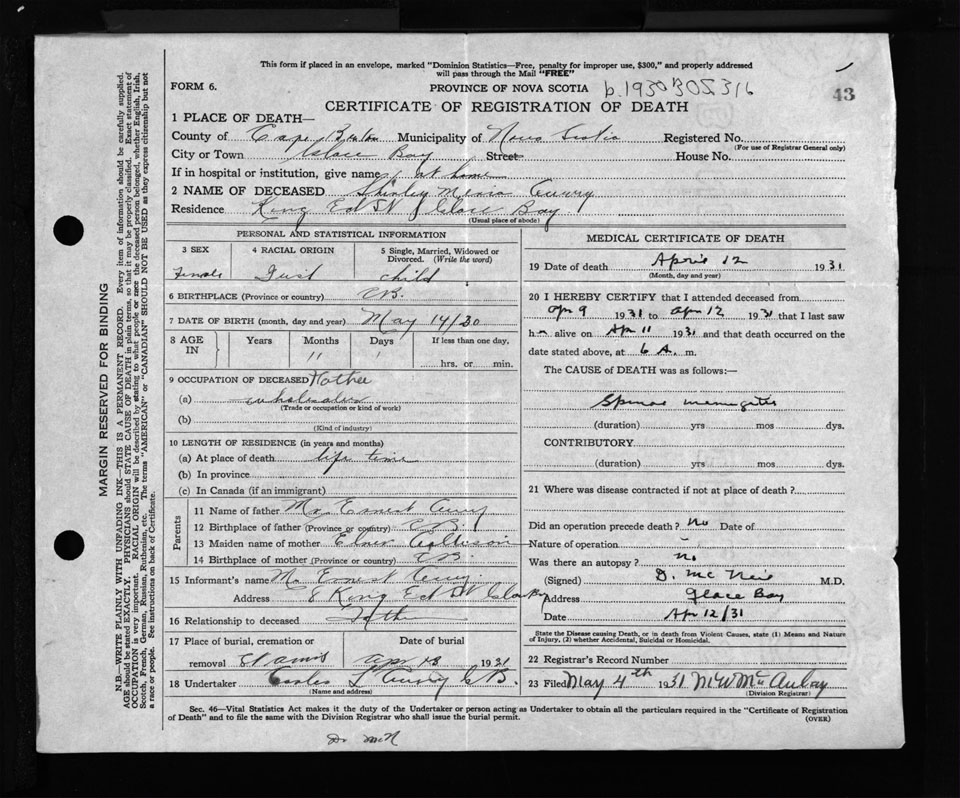 This form if placed in an envelope, marked "Dominion Statistics—Free, penalty for improper use, $300," and properly addressed
will pass through the Mail "FREE"
FORM 6.
PROVINCE OF NOVA SCOTIA
b.1930 305316
43
CERTIFICATE OF REGISTRATION OF DEATH
1 PLACE OF DEATH—
County of Cape Breton Municipality of Nova Scotia Registered No.
(For use of Registrar General only)
City or Town Glace Bay Street House No.
If in hospital or institution, give name at home
2 NAME OF DECEASED Shirley Curry
Residence King Glace Bay
(Usual place of abode)
PERSONAL AND STATISTICAL INFORMATION
3 SEX
Female
4 RACIAL ORIGIN
5 Single, Married, Widowed or
Divorced. (Write the word)
child
6 BIRTHPLACE (Province or country) CB.
7 DATE OF BIRTH (month, day and year) May 14/30
8 AGE
IN
Years
Months
11
Days
If less than one day,
hrs. or min.
9 OCCUPATION OF DECEASED
(a)
(Trade or occupation or kind of work)
(b)
(Kind of industry)
10 LENGTH OF RESIDENCE (in years and months)
(a) At place of death life time
(b) In province
(c) In Canada (if an immigrant)
Parents
11 Name of father Mr Ernest Curry
12 Birthplace of father (Province or country) CB.
13 Maiden name of mother
14 Birthplace of mother (Province or country) CB
15 Informant's name Mr Ernest Curry
Address 8 King
16 Relationship to deceased Father
17 Place of burial, cremation or
removal
Date of burial
Apr 13 1931
18 Undertaker Curry
(Name and address)
MEDICAL CERTIFICATE OF DEATH
19 Date of death April 12 1931
(Month, day and year)
20 I HEREBY CERTIFY that I attended deceased from
Apr 9 1931 to Apr 12 1931 that I last saw
h alive on Apr 11 1931 and that death occurred on
date stated above, at 6 A. m.
The CAUSE of DEATH was as follows:—
Spinal meningitis
(duration) yrs mos dys.
CONTRIBUTORY
(duration) yrs mos dys.
21 Where was disease contracted if not at place of death?
Did an operation precede death? No Date of
Nature of operation –
Was there an autopsy? no
(Signed) D. McNeil M.D.
Address Glace Bay
Date Apr 12/31
State the Disease causing Death, or in death from Violent Causes, state (1) Means and Nature
of Injury, (2) whether Accidental, Suicidal or Homicidal.
22 Registrar's Record Number
23 Filed May 4th 1931 McAulay
(Division Registrar)
Sec. 46—Vital Statistics Act makes it the duty of the Undertaker or person acting as Undertaker to obtain all the particulars required in the "Certificate of Registration
of Death" and to file the same with the Division Registrar who shall issue the burial permit.
(OVER)
Dr McN
MARGIN RESERVED FOR BINDING
N.B.—WRITE PLAINLY WITH UNFADING INK—THIS IS A PERMANENT RECORD. Every item of information should be carefully supplied.
AGE should be stated EXACTLY. PHYSICIANS should STATE CAUSE OF DEATH in plain terms, so that it may be properly classified. Exact statement of
OCCUPATION is very important. RACIAL ORIGIN will be described by stating to what people or race the deceased person belonged, whether English, Irish,
Scotch, French, German, Russian, Ruthenian, etc. The terms "AMERICAN" or "CANADIAN" SHOULD NOT BE USED as they express citizenship but not
a race or people. See instructions on back of Certificate.